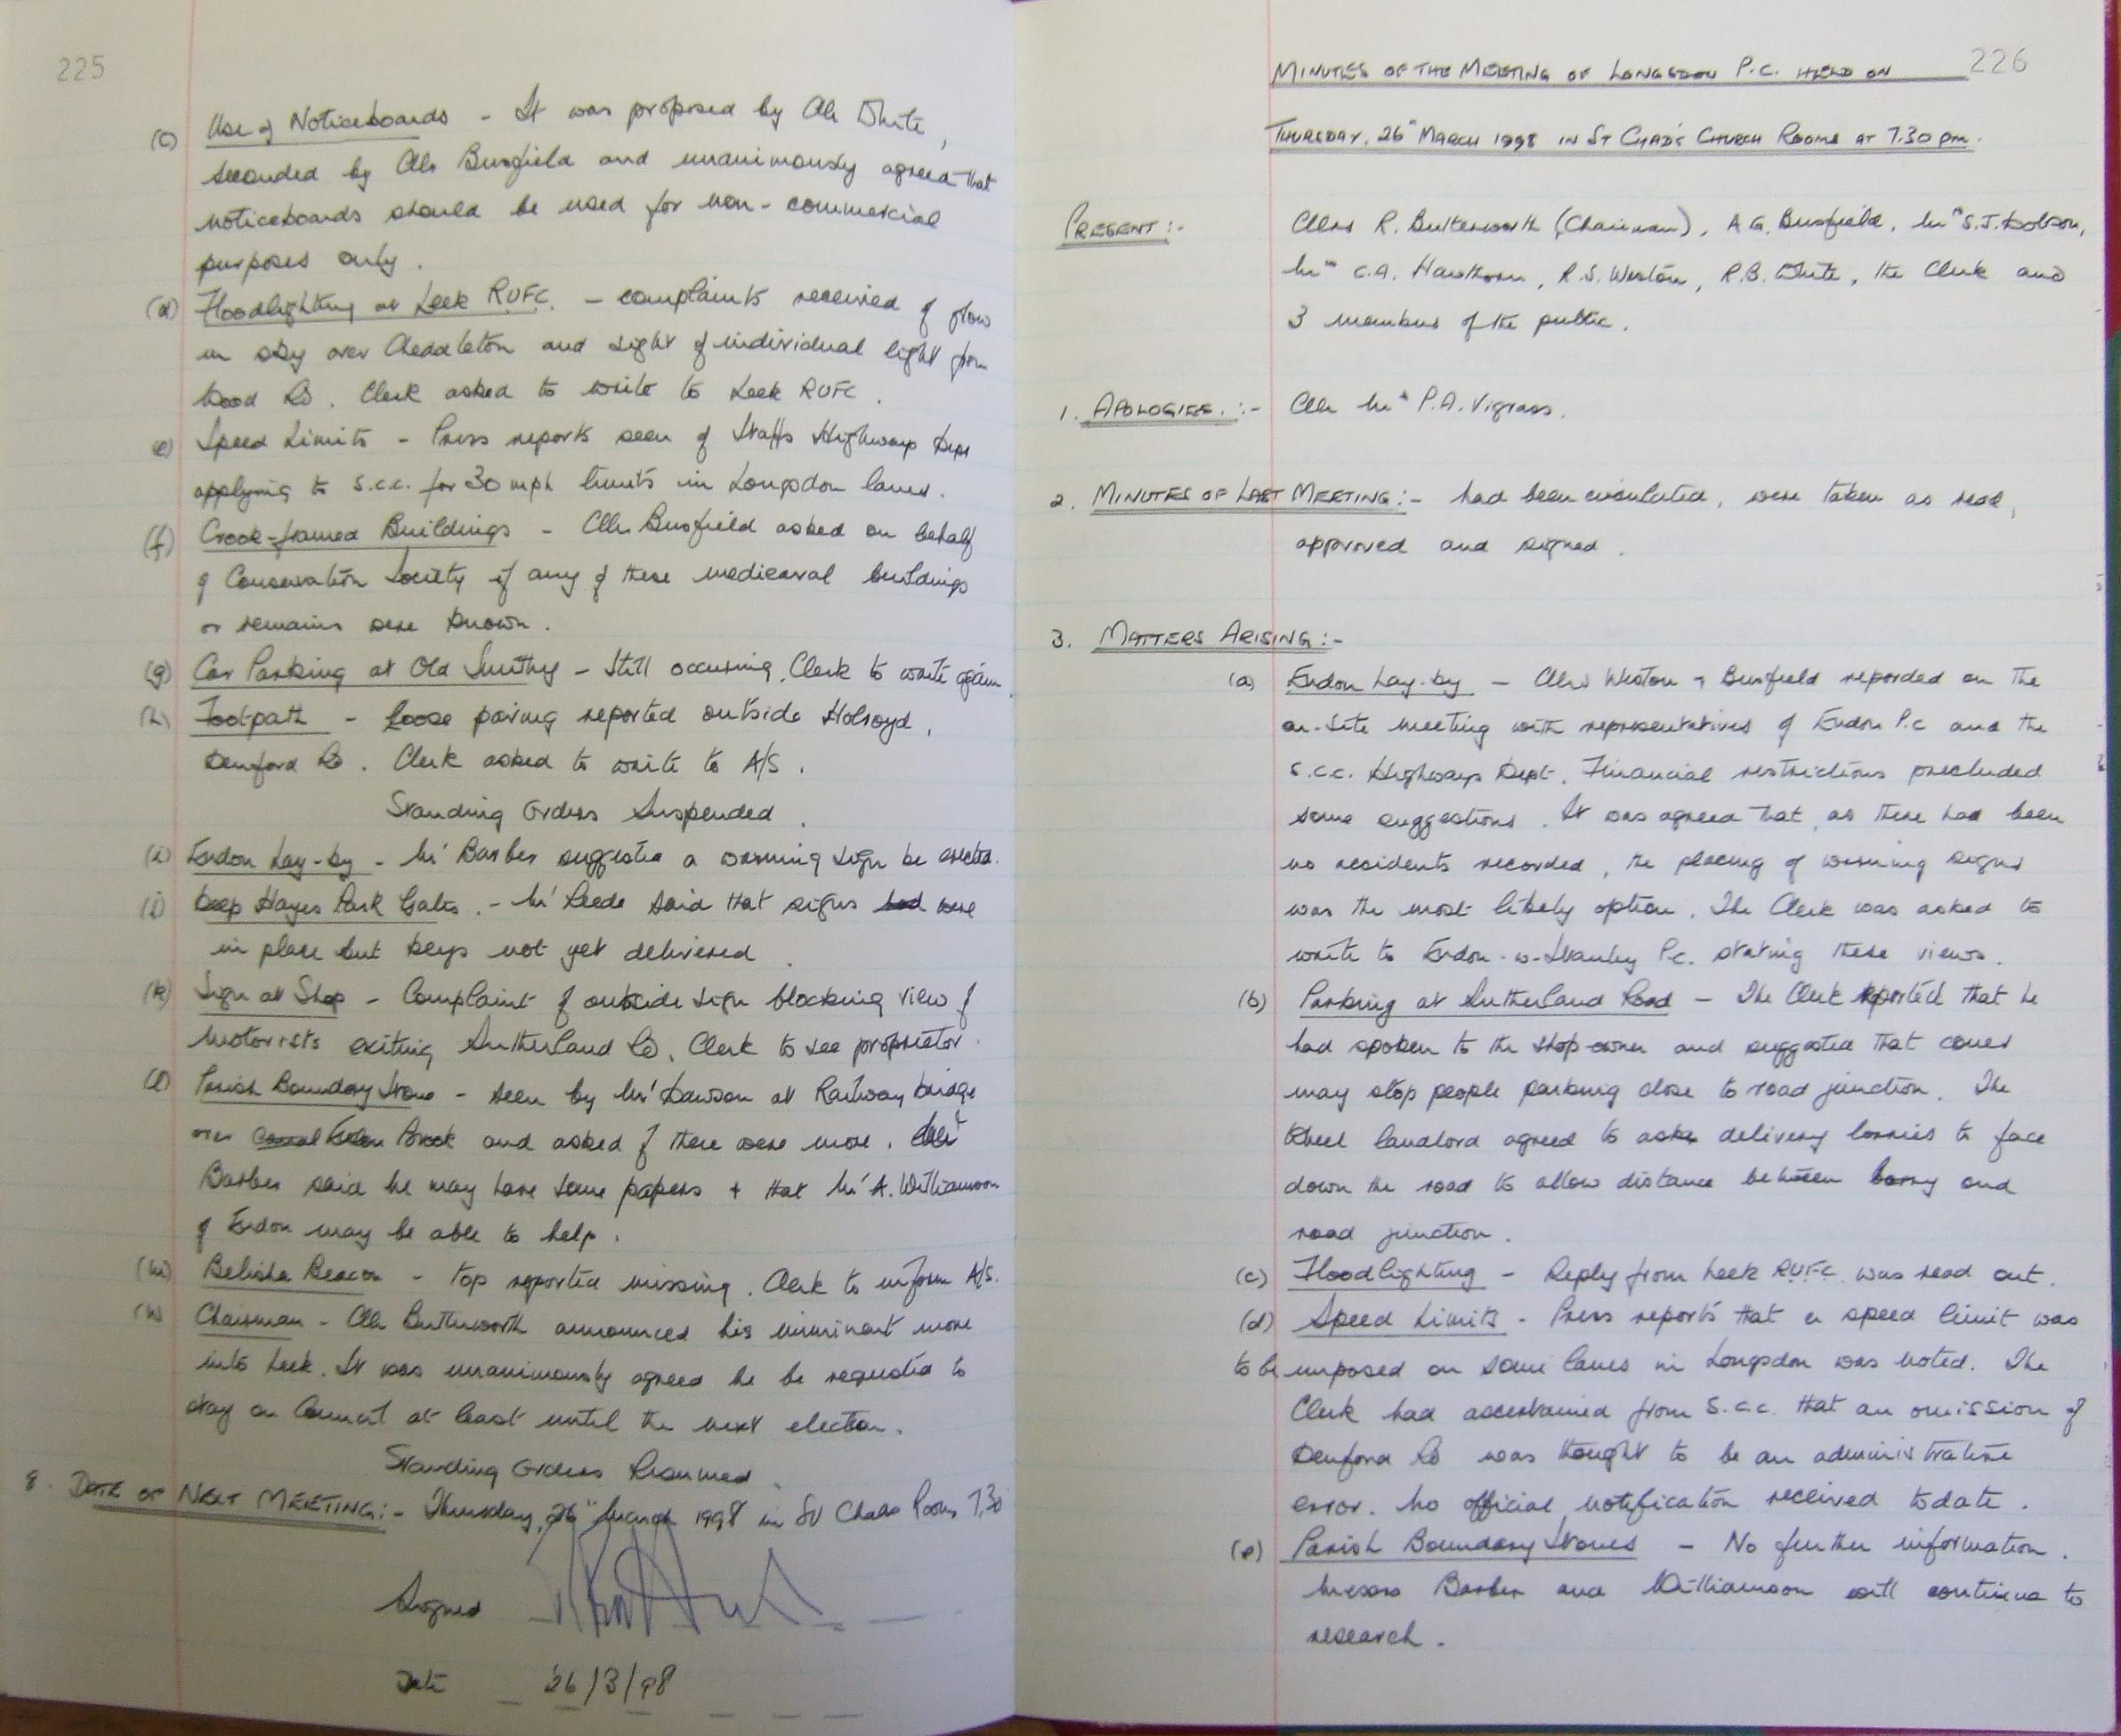 225
(c) Use of Noticeboards - It was proposed by Cllr White,
seconded by Cllr Busfield and unanimously agreed that
noticeboards should be used for non-commercial
purposes only.
(d) Floodlighting at Leek RUFC. - complaints received of glow
in sky over Cheddleton and sight of individual light from
Wood Rd. Clerk asked to write to Leek RUFC.
(e) Speed Limits - Press reports seen of Staffs Highways Dept
applying to S.C.C. for 30 mph limits in Longsdon lanes.
(f) Crook-framed Buildings - Cllr Busfield asked on behalf
of Conservation Society if any of these mediaeval buildings
or remains were known.
(g) Car Parking at Old Smithy - Still occurring, Clerk to write again.
(h) Footpath - Loose paving reported outside Holroyd,
Denford Rd. Clerk asked to write to A/S.
Standing Orders Suspended.
(i) Endon Lay-by - Mr Barber suggested a warning sign be erected.
(j) Deep Hayes Park Gates. - Mr Leede said that signs had were
in place but keys not yet delivered.
(k) Sign at Shop - Complaint of outside sign blocking view of
motorists exiting Sutherland Rd. Clerk to see proprietor.
(l) Parish Boundary Stone - seen by Mr Dawson at Railway bridge
over canal Brook and asked if there were more.
Barber said he may have some papers + that Mr A. Williamson
of Endon may be able to help.
(m) Belisha Beacon - top reported missing. Clerk to inform A/S.
(n) Chairman - Cllr Butterworth announced his imminent move
into Leek. It was unanimously agreed he be requested to
stay on Council at least until the next election.
Standing Orders Resumed.
8. DATE OF NEXT MEETING:- Thursday, 26th March 1998 in St Chads Rooms 7.30
Signed
Date 26/3/98
226
MINUTES OF THE MEETING OF LONGSDON P.C. HELD ON
THURSDAY, 26th MARCH 1998 IN ST CHAD'S CHURCH ROOMS AT 7.30 pm.
PRESENT:- Cllrs R. Butterworth (Chairman), A.G. Busfield, Mrs S.J. Dobson,
Mrs C.A. Hawthorn, R.S. Weston, R.B. White, the Clerk and
3 members of the public.
1. APOLOGIES.:- Cllr Mrs P.A. Vigrass.
2. MINUTES OF LAST MEETING:- had been circulated, were taken as read,
approved and signed.
3. MATTERS ARISING:-
(a) Endon Lay-by - Cllrs Weston & Busfield reported on the
on-site meeting with representatives of Endon P.C and the
S.C.C. Highways Dept. Financial restrictions precluded
some suggestions. It was agreed that, as there had been
no accidents recorded, the placing of warning signs
was the most likely option. The Clerk was asked to
write to Endon-w-Stanley P.C. stating these views.
(b) Parking at Sutherland Road - The Clerk reported that he
had spoken to the shop-owner and suggested that cones
may stop people parking close to road junction. The
Wheel landlord agreed to ask delivery lorries to face
down the road to allow distance between lorry and
road junction.
(c) Floodlighting - Reply from Leek R.U.F.C. was read out.
(d) Speed Limits - Press reports that a speed limit was
to be imposed on some lanes in Longsdon was noted. The
Clerk had ascertained from S.C.C. that an omission of
Denford Rd was thought to be an administrative
error. No official notification received to date.
(e) Parish Boundary Stones - No further information.
Messrs Barber and Williamson will continue to
research.